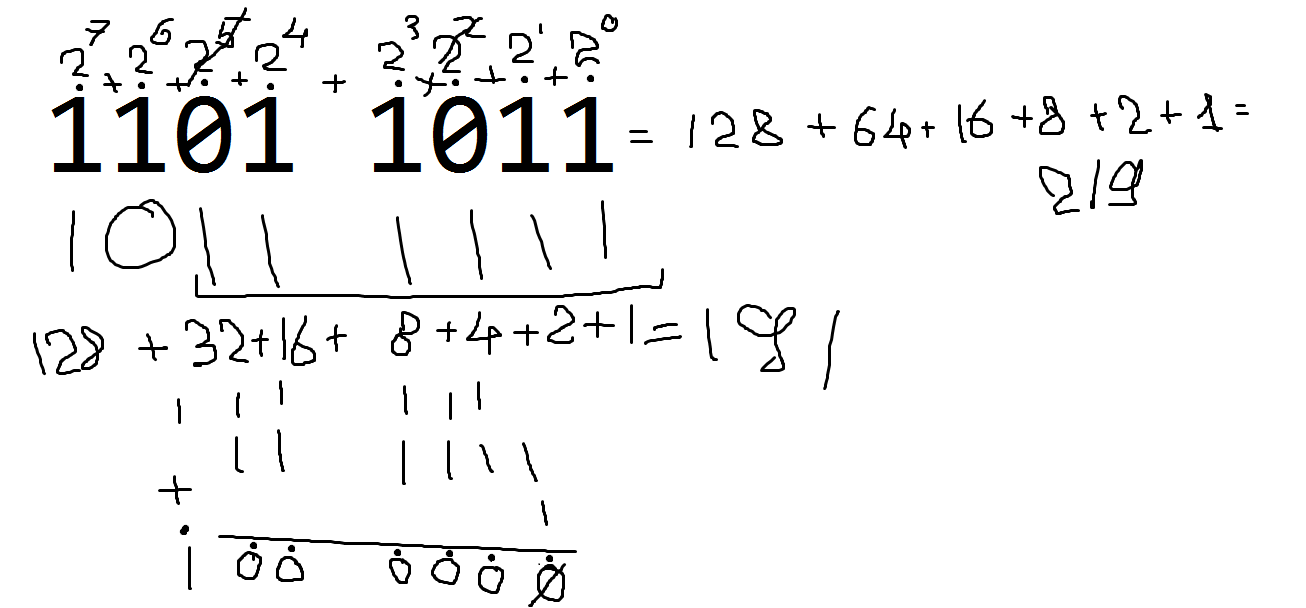 2⁷ + 2⁶ + 2⁵ + 2⁴ + 2³ + 2² + 2¹ + 2⁰
1101 1011 = 128 + 64 + 16 + 8 + 2 + 1 =
219
1 0 1 1 1 1 1 1
128 + 32 + 16 + 8 + 4 + 2 + 1 = 191
1 1 1 1 1 1
1 1 1 1 1 1
+ 1
1 0 0 0 0 0 0